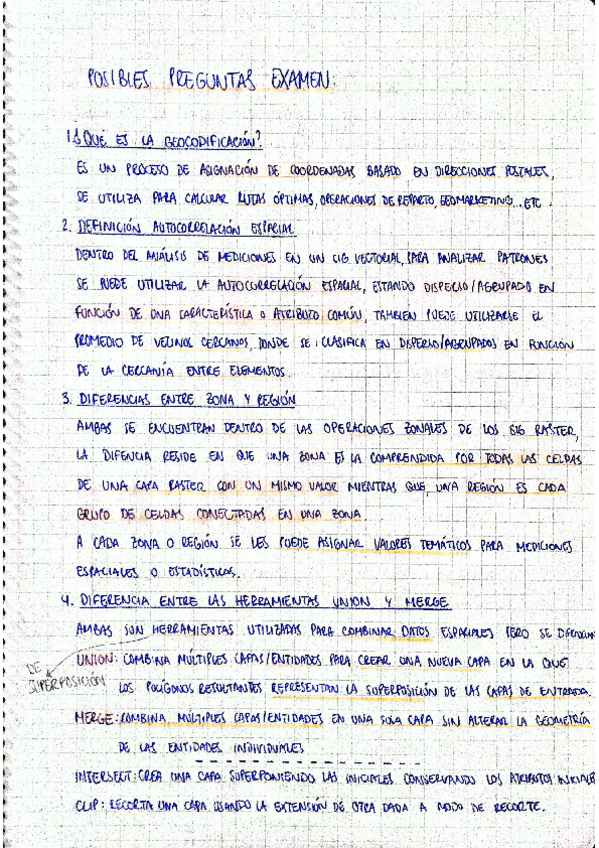 POSIBLES PREGUNTAS EXAMEN:
1.¿QUÉ ES LA GEOCODIFICACIÓN?
ES UN PROCESO DE ASIGNACIÓN DE COORDENADAS BASADO EN DIRECCIONES POSTALES,
SE UTILIZA PARA CALCULAR RUTAS ÓPTIMAS, OPERACIONES DE REPARTO, GEOMARKETING...ETC.
2. DEFINICIÓN AUTOCORRELACIÓN ESPACIAL
DENTRO DEL ANÁLISIS DE MEDICIONES EN UN GIG VECTORIAL, PARA ANALIZAR PATRONES
SE PUEDE UTILIZAR LA AUTOCORRELACIÓN ESPACIAL, ESTANDO DISPERSO/AGRUPADO EN
FUNCIÓN DE UNA CARACTERÍSTICA O ATRIBUTO COMÚN, TAMBIÉN PUEDE UTILIZARSE EL
PROMEDIO DE VECINOS CERCANOS, DONDE SE CLASIFICA EN DISPERSO/AGRUPADOS EN FUNCIÓN
DE LA CERCANÍA ENTRE ELEMENTOS.
3. DIFERENCIAS ENTRE ZONA Y REGIÓN
AMBAS SE ENCUENTRAN DENTRO DE LAS OPERACIONES ZONALES DE LOS SIG RASTER,
LA DIFENCIA RESIDE EN QUE UNA ZONA ES LA COMPRENDIDA POR TODAS LAS CELDAS
DE UNA CAPA RASTER CON UN MISMO VALOR MIENTRAS QUE, UNA REGIÓN ES CADA
GRUPO DE CELDAS CONECTADAS EN UNA ZONA.
A CADA ZONA O REGIÓN SE LES PUEDE ASIGNAR VALORES TEMÁTICOS PARA MEDICIONES
ESPACIALES O ESTADÍSTICAS.
4. DIFERENCIA ENTRE LAS HERRAMIENTAS UNION Y MERGE
AMBAS SON HERRAMIENTAS UTILIZADAS PARA COMBINAR DATOS ESPACIALES PERO SE
UNION: COMBINA MÚLTIPLES CAPAS/ENTIDADES PARA CREAR UNA NUEVA CAPA EN LA QUE
DE SUPERPOSICIÓN
LOS POLÍGONOS RESULTANTES REPRESENTAN LA SUPERPOSICIÓN DE LAS CAPAS DE ENTRADA.
MERGE: COMBINA MÚLTIPLES CAPAS/ENTIDADES EN UNA SOLA CAPA SIN ALTERAR LA GEOMETRÍA
DE LAS ENTIDADES INDIVIDUALES
INTERSECT: CREA UNA CAPA SUPERPONIENDO LAS INICIALES CONSERVANDO LOS ATRIBUTOS
CLIP: RECORTA UNA CAPA USANDO LA EXTENSIÓN DE OTRA DADA A MODO DE RECORTE.